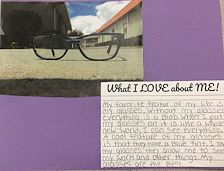 What I LOVE about ME!
My favorite featur of my life is
my glasses. Without my glasses
everything is a blob. When I put
my glasses on it is like a whole
new world. I can see everything.
A cool feature of my glasses
is that they have a blue tint. I love
my glasses they allow me to see
my work and other things. My
glasses are the best.